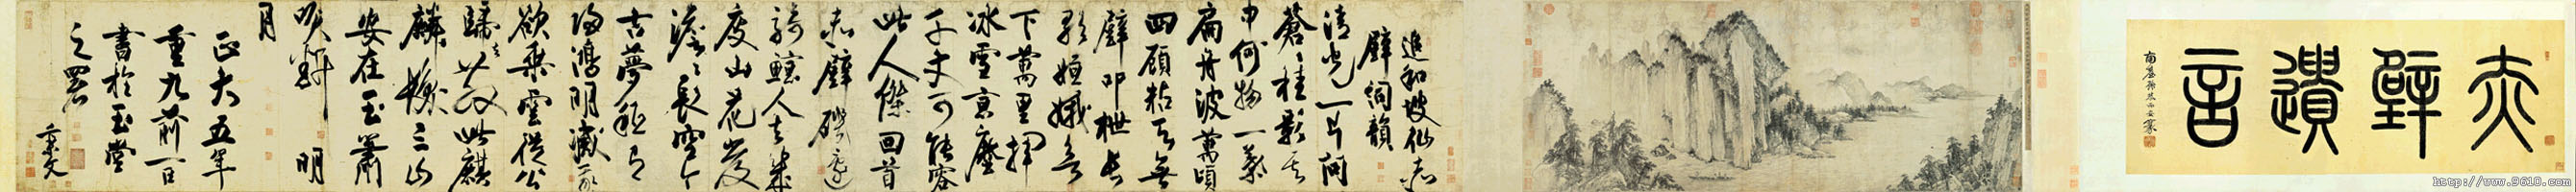 赤壁遺言
追和坡仙赤
壁詞韻
清光一片問
蒼蒼桂影其
中何物一葉
扁舟波萬頃
四顧粘天無
壁叩枻長
歌姮娥欲
下萬里揮
冰雪京塵
千丈可能容
此人傑回首
赤壁磯邊
騎鯨人去幾
度山花發
澹澹長空今
古夢秖有
歸鴻明滅我
欲乘雲從公
歸去散此麒
麟韈三山
安在玉簫
吹斷明
月
正大五年
重九前一日
書於玉堂
之署
秉文
http://www.9610.com